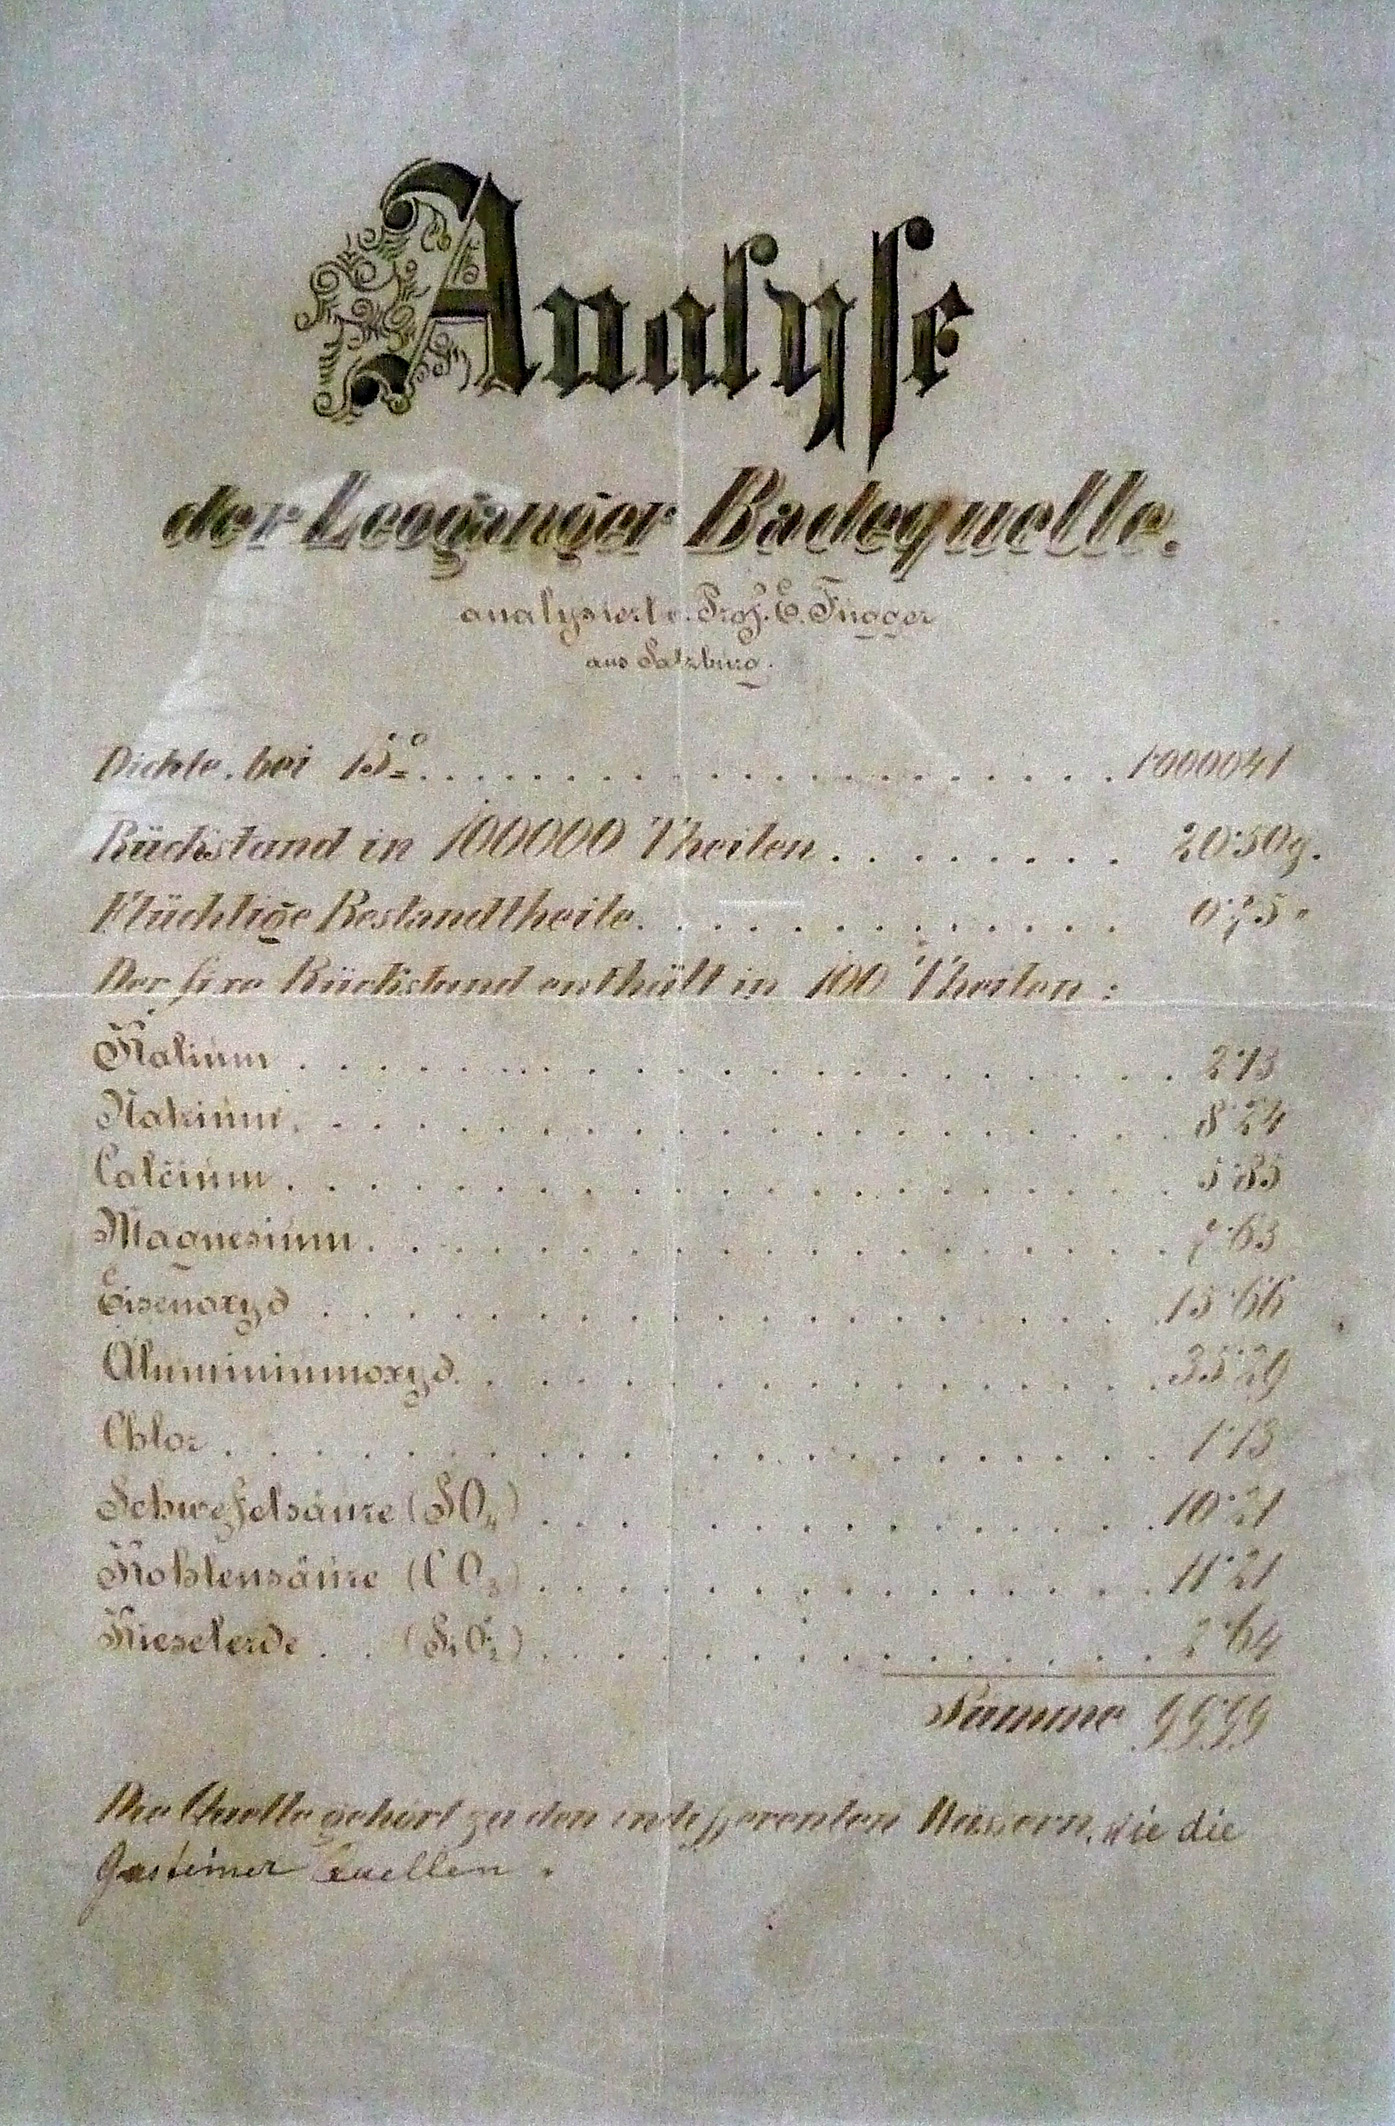 Analyse
der Leoganger Badequelle.
analysiert v. Prof. E. Fugger
aus Salzburg.
Dichte bei 15° . . . . . . . . . . . . . . . . . . . 1·000041
Rückstand in 100000 Theilen . . . . . . . . . 20·50g.
Flüchtige Bestandtheile . . . . . . . . . . . . . 0·75 "
Der fixe Rückstand enthält in 100 Theilen :
Kalium . . . . . . . . . . . . . . . . . . . . 2·13
Natrium . . . . . . . . . . . . . . . . . . . . 8·24
Calcium . . . . . . . . . . . . . . . . . . . . 5·85
Magnesium . . . . . . . . . . . . . . . . . . . 7·63
Eisenoxyd . . . . . . . . . . . . . . . . . . . 15·66
Aluminiumoxyd . . . . . . . . . . . . . . . . 35·29
Chlor . . . . . . . . . . . . . . . . . . . . . 1·13
Schwefelsäure (SO₄) . . . . . . . . . . . . . . 10·21
Kohlensäure (CO₃) . . . . . . . . . . . . . . 11·21
Kieselerde . . (SiO₂) . . . . . . . . . . . . . . 2·64
Summe 99·99
Die Quelle gehört zu den indifferenten Wässern, wie die
Gasteiner Quellen .